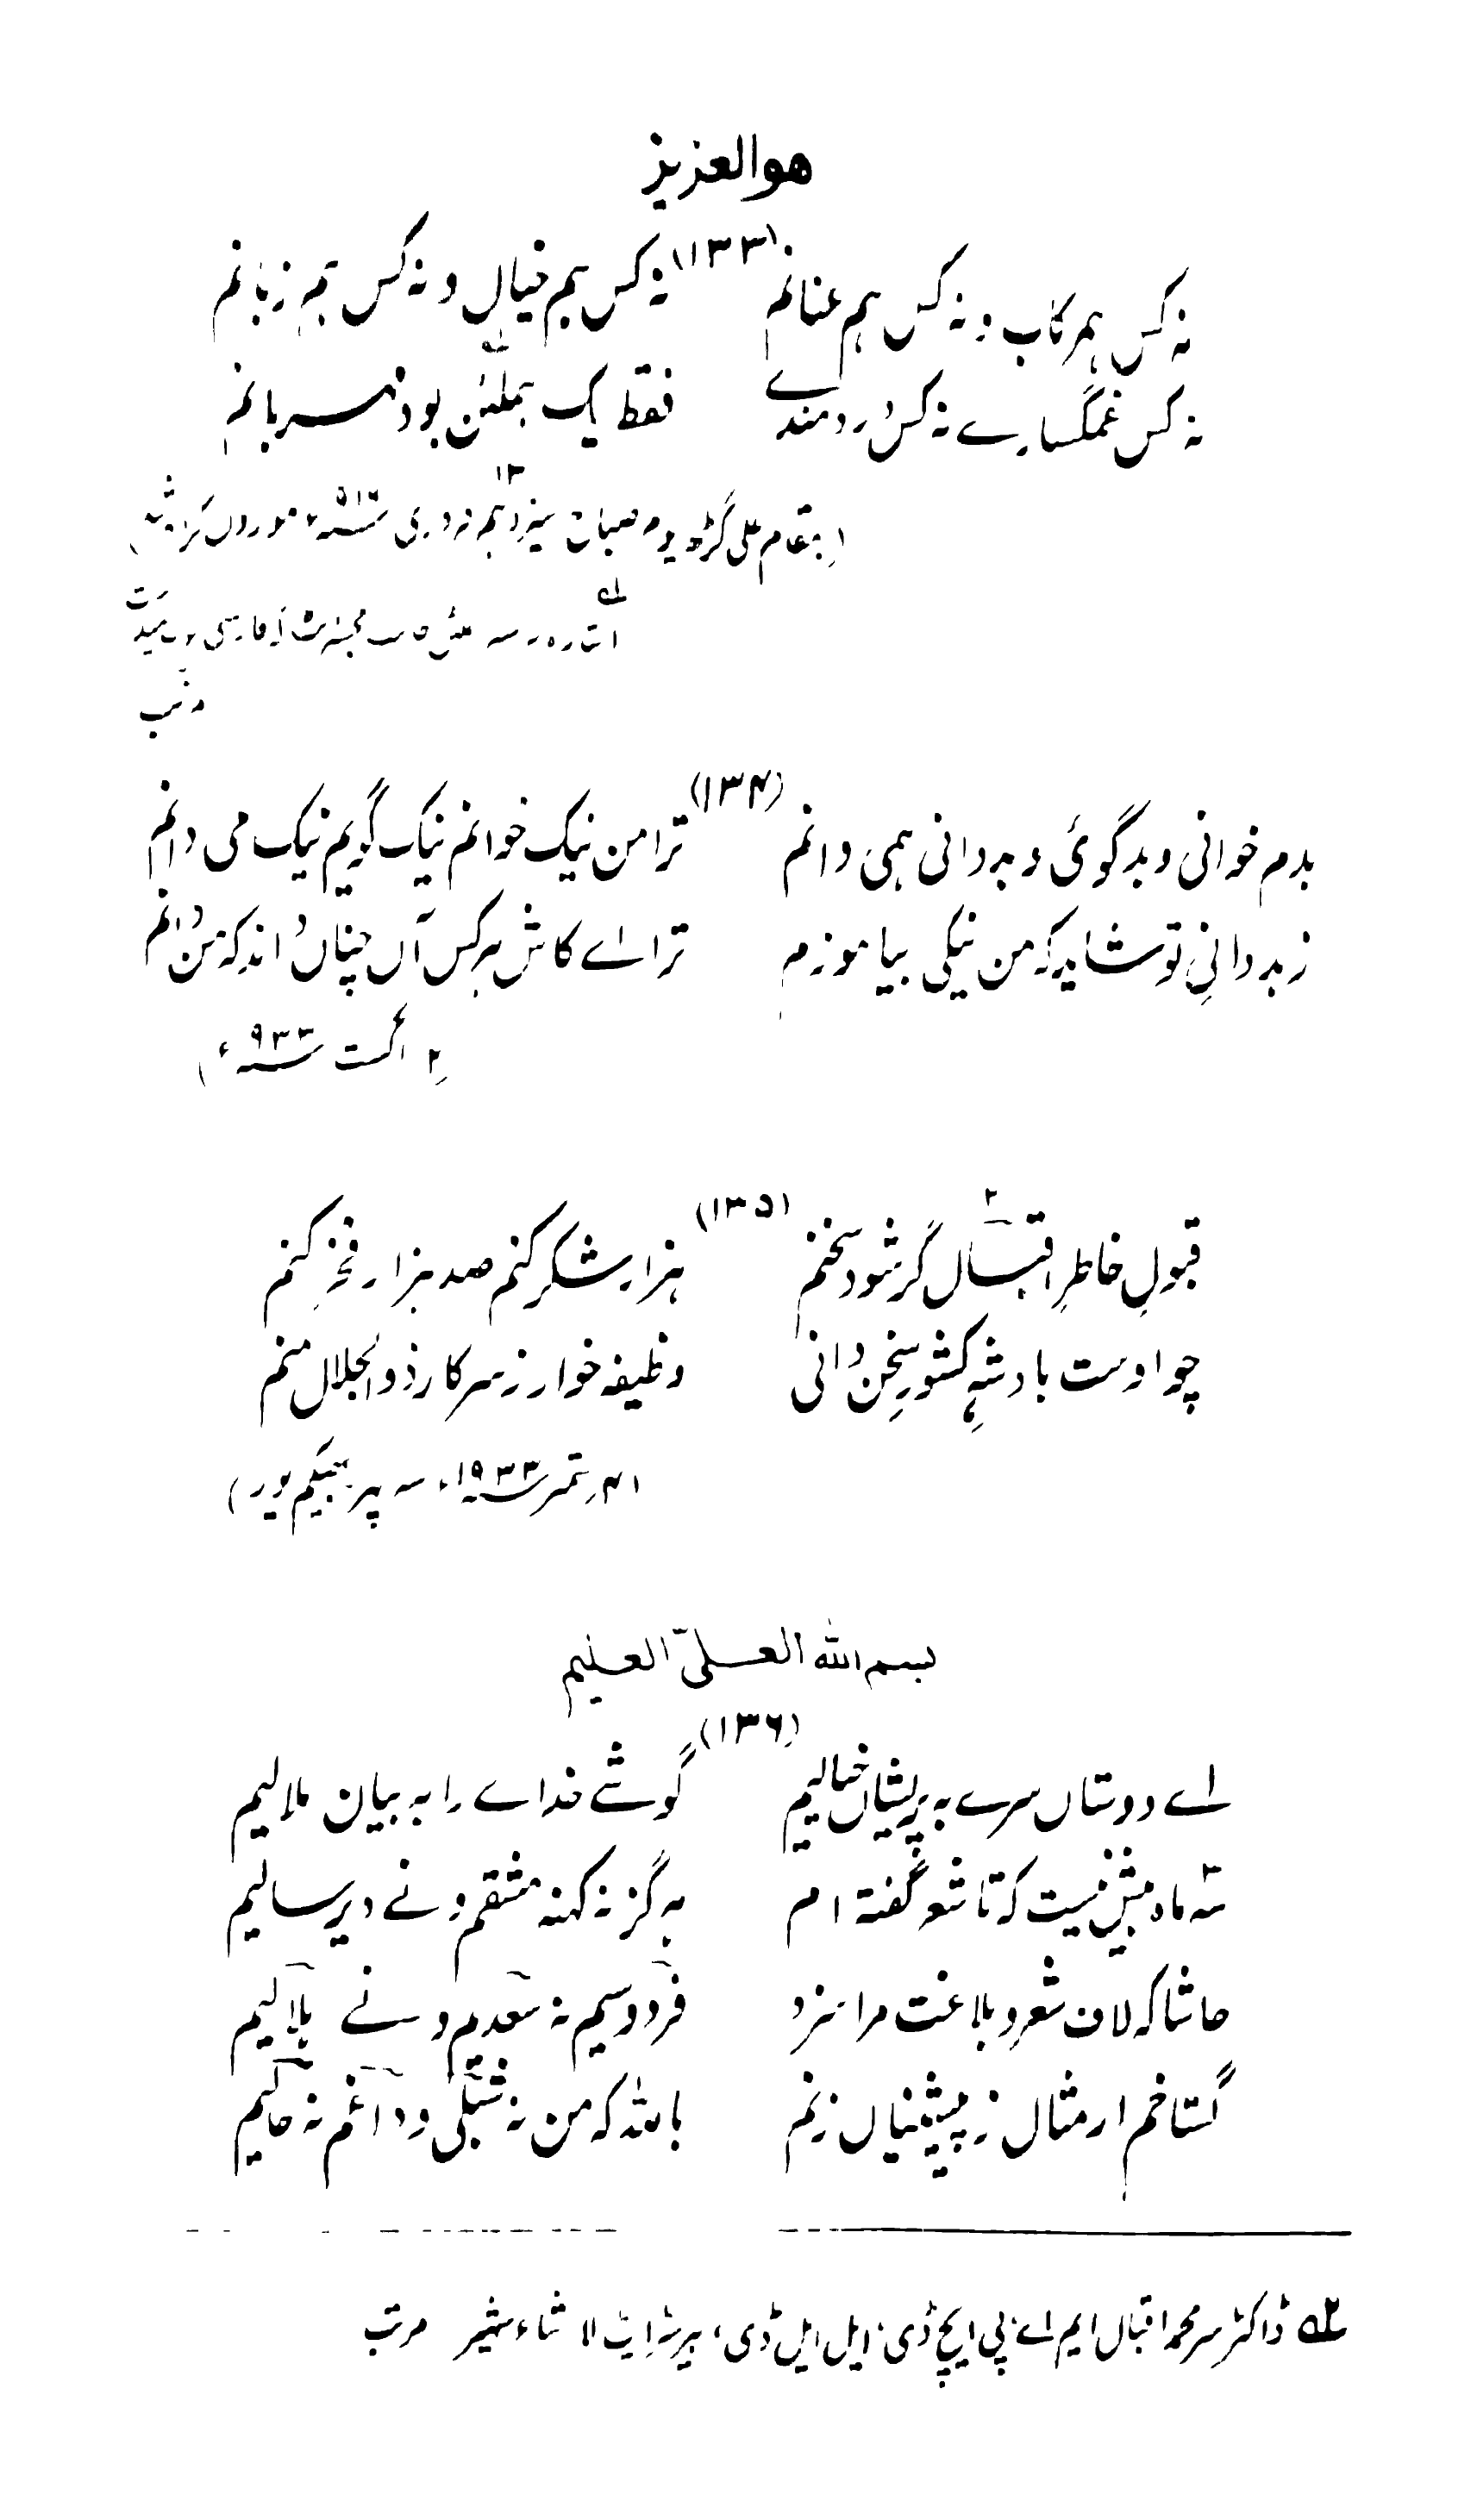 هوالعزیز
(۱۳۳)
نہ کس ہمرکاب و نہ کس ہم عنانم نہ کس ہم خیال و نہ کس ہم زبانم
نہ کس غمگسارے نہ کس دردمندے فقط یک بود مہربانم
(بمقام علی گڑھ
مرتب
(۱۳۴)
بدم خوانی و بد گوئی و بد دانی ہمی دانم ترا من نیک خوانم نیک گویم نیک می دانم
ز بد دانیِ تو شاید کہ من نیکی بیاموزم ترا اے کاش ہر کس آں چناں داند کہ من دانم
(۲ اگست ۱۹۳۳ء)
(۱۳۵)
قبولِ خاطرِ اقبالؔ۲ گر شود سخنم ہزار شکر کنم صد ہزار فخر کنم
چو اوست بادشہِ کشورِ سخن دانی وظیفہ خوار ز سرکار ذوالجلال منم
(۴ ستمبر ۱۹۳۳ء سہ پہر بھیکم پور)
بسم اللہ العلیّ العلیم
(۱۳۶)
اے دوستاں سرے بہ پریشاں خیالیم گوشے خدائے را بہ بیان ملالیم
سہ ماہ بیش نیست کہ تا شعر گفتہ ام ہرگز نہ کہنہ مشقم و نے دیر سالیم
حاشا کہ لاف شعر و بلاغت مرا سزد فردوسیم نہ سعدیم و نے ہلالیم
گستاخم ار مثال ز پیشینیاں زنم باللہ کہ من نہ شبلی و داغم نہ حالیم
۲؎ ڈاکٹر سر محمد اقبال ایم اے، پی ایچ ڈی، ایل ایل ڈی، بیرسٹر ایٹ لا شاعر شہیر مرتب